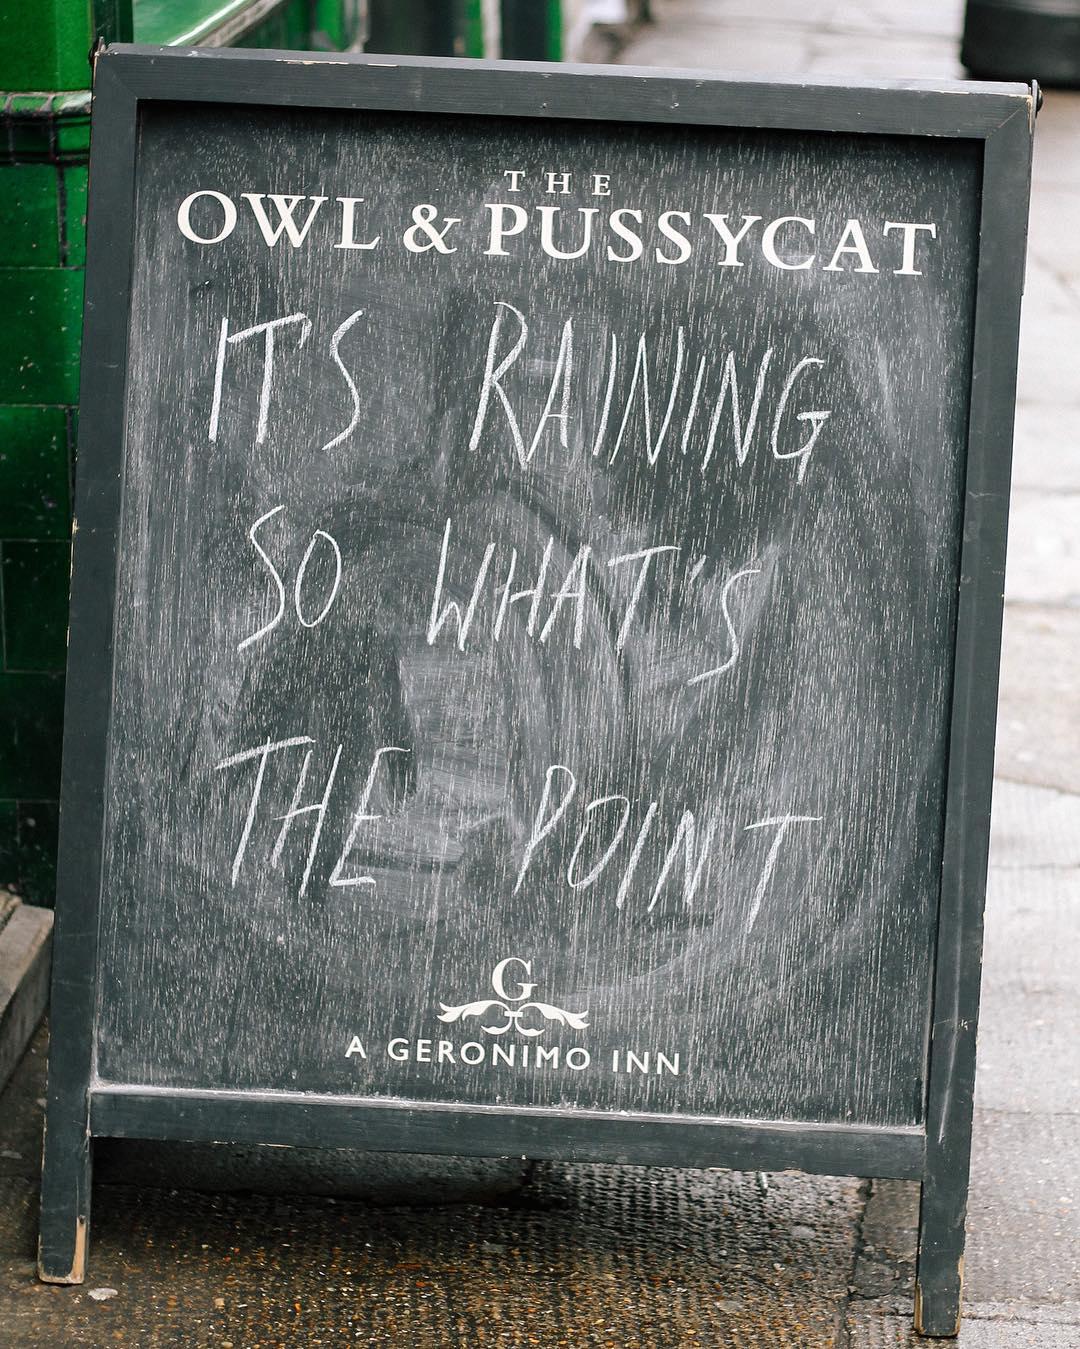 THE
OWL & PUSSYCAT
IT'S RAINING
SO WHAT'S
THE POINT
G
A GERONIMO INN